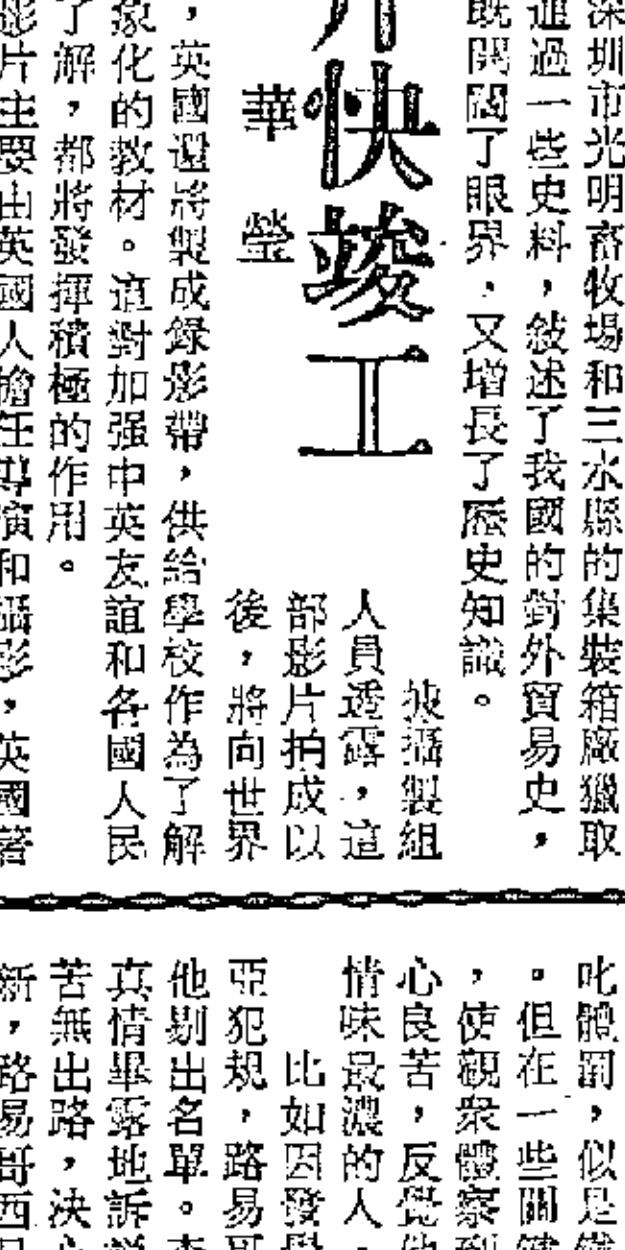 深圳市光明畜牧場和三水縣的集裝箱廠獵取
進過一些史料，敍述了我國的對外貿易史，
既開闊了眼界，又增長了歷史知識。
快竣工
華瑩
據攝製組
人員透露，這
部影片拍成以
後，將向世界
，英國還將製成錄影帶，供給學校作為了解
象化的教材。這對加强中英友誼和各國人民
了解，都將發揮積極的作用。
影片主要由英國人擔任導演和攝影，英國著
叱體罰，似是
。但在一些關鍵
，使觀衆體察到
心良苦，反覺他
情味最濃的人，
比如因發
亞犯規，路易哥
他剔出名單。
真情畢露地訴説
苦無出路，決心
新，路易哥西